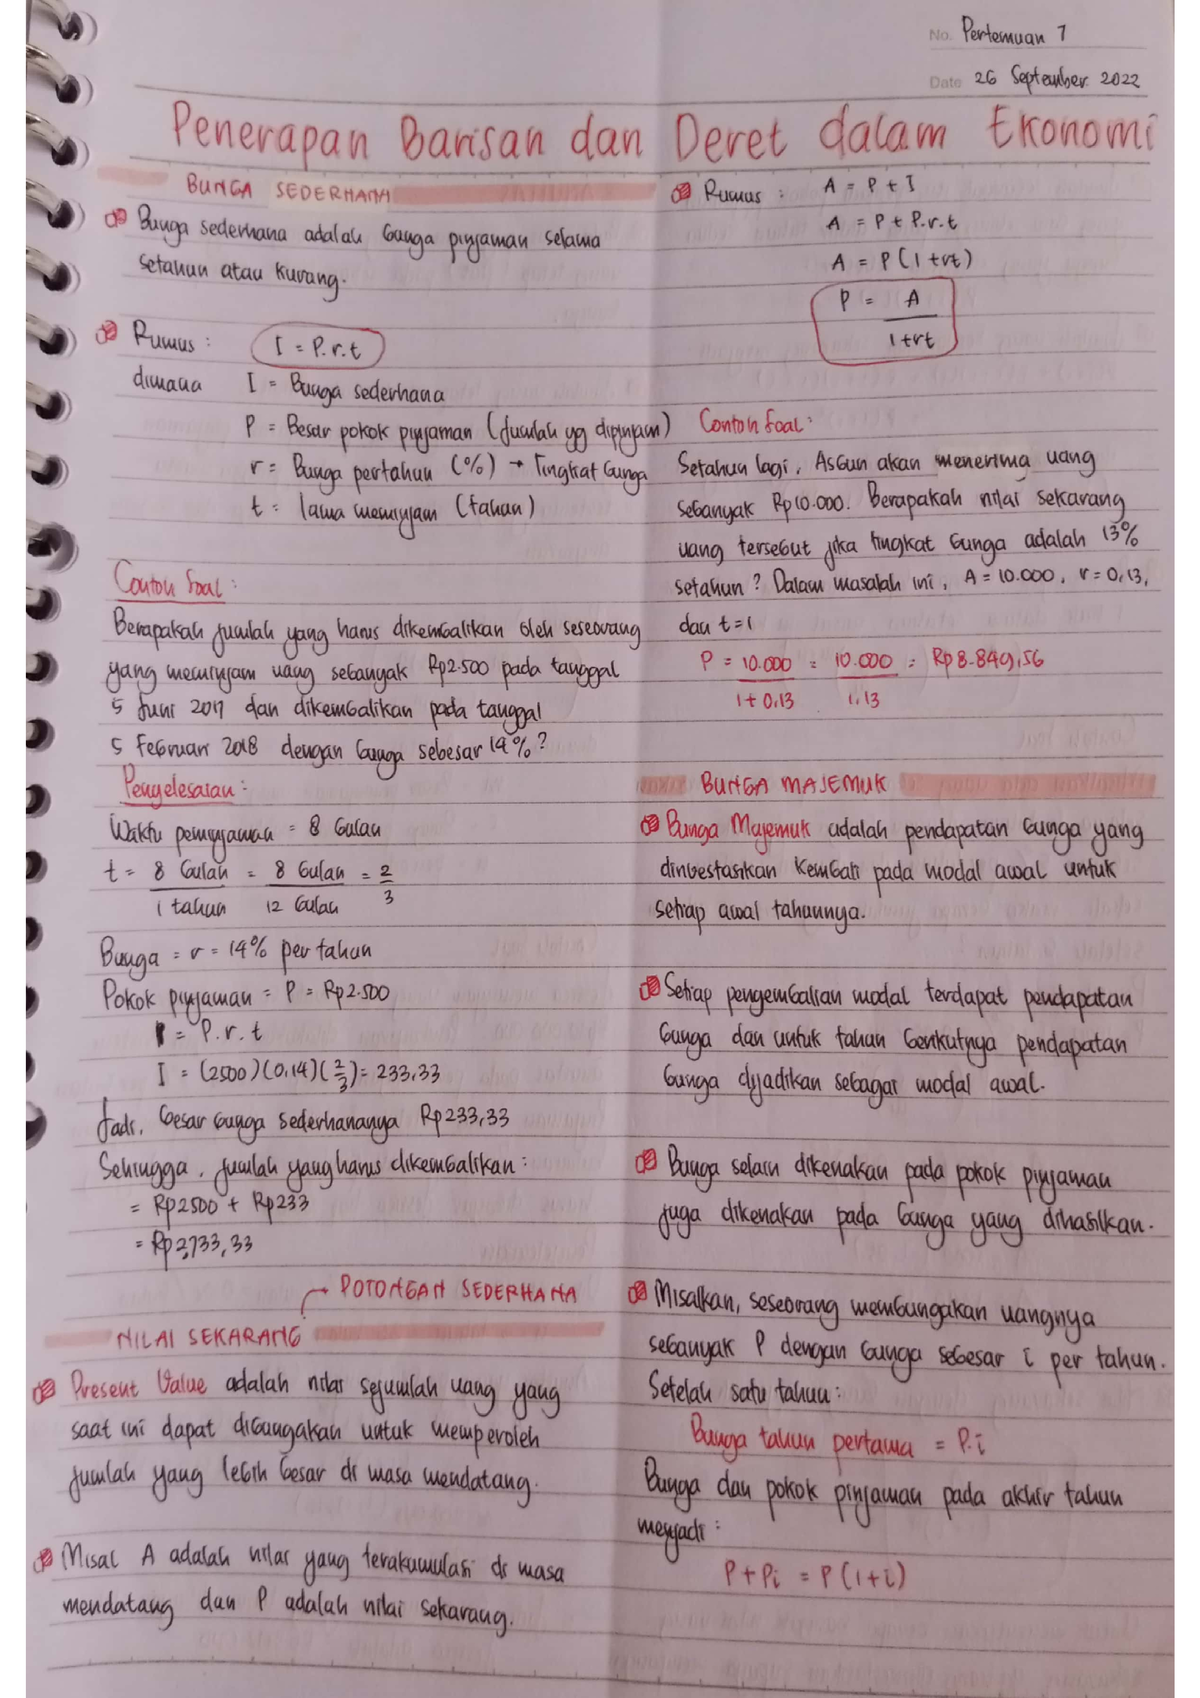 No. Pertemuan 7
Date 26 September 2022
Penerapan Barisan dan Deret dalam Ekonomi
BUNGA SEDERHANA
Bunga sederhana adalah bunga pinjaman selama
setahun atau kurang.
Rumus : I = P.r.t
dimana I = Bunga sederhana
P = Besar pokok pinjaman (Jumlah yg dipinjam)
r = Bunga pertahun (%) → Tingkat bunga
t = lama meminjam (tahun)
Contoh Soal :
Berapakah jumlah yang harus dikembalikan oleh seseorang
yang meminjam uang sebanyak Rp2.500 pada tanggal
5 Juni 2017 dan dikembalikan pada tanggal
5 Februari 2018 dengan bunga sebesar 14%?
Penyelesaian :
Waktu peminjaman = 8 bulan
t = 8 bulan / 1 tahun = 8 bulan / 12 bulan = 2/3
Bunga = r = 14% per tahun
Pokok pinjaman = P = Rp2.500
I = P.r.t
I = (2500)(0,14)(2/3) = 233,33
Jadi, besar bunga sederhananya Rp233,33
Sehingga, jumlah yang harus dikembalikan :
= Rp2500 + Rp233
= Rp2,733,33
→ POTONGAN SEDERHANA
NILAI SEKARANG
Present Value adalah nilai sejumlah uang yang
saat ini dapat dibungakan untuk memperoleh
jumlah yang lebih besar di masa mendatang.
Misal A adalah nilai yang terakumulasi di masa
mendatang dan P adalah nilai sekarang.
Rumus : A = P + I
A = P + P.r.t
A = P(1+rt)
P = A / 1+rt
Contoh Soal :
Setahun lagi, Asbun akan menerima uang
sebanyak Rp10.000. Berapakah nilai sekarang
uang tersebut jika tingkat bunga adalah 13%
setahun? Dalam masalah ini, A = 10.000, r = 0,13,
dan t = 1
P = 10.000 / 1 + 0,13 = 10.000 / 1,13 = Rp8.849,56
BUNGA MAJEMUK
Bunga Majemuk adalah pendapatan bunga yang
diinvestasikan kembali pada modal awal untuk
setiap awal tahunnya.
Setiap pengembalian modal terdapat pendapatan
bunga dan untuk tahun berikutnya pendapatan
bunga dijadikan sebagai modal awal.
Bunga selain dikenakan pada pokok pinjaman
juga dikenakan pada bunga yang dihasilkan.
Misalkan, seseorang membungakan uangnya
sebanyak P dengan bunga sebesar i per tahun.
Setelah satu tahun :
Bunga tahun pertama = P.i
Bunga dan pokok pinjaman pada akhir tahun
menjadi :
P + Pi = P(1+i)